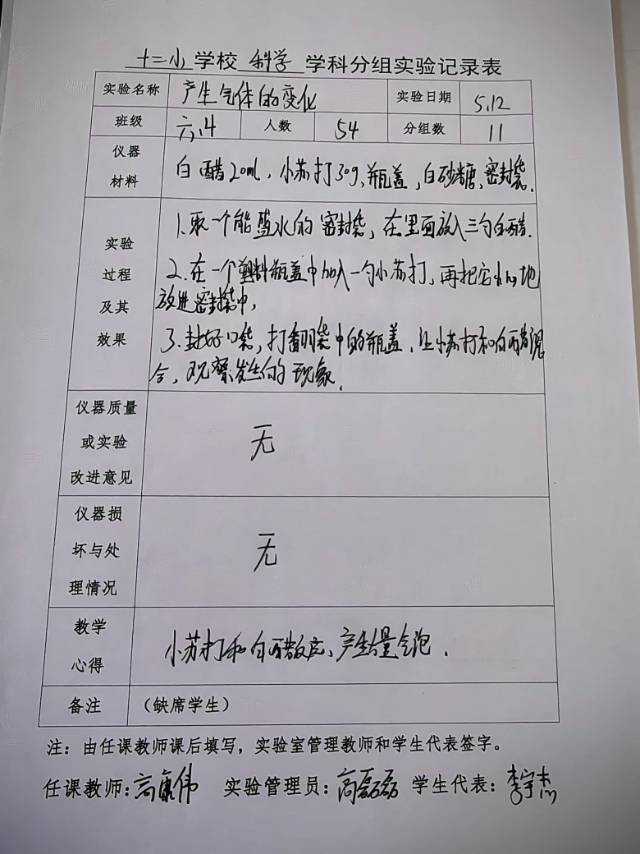 十二小学校 科学 学科分组实验记录表
实验名称 产生气体的变化 实验日期 5.12
班级 六.4 人数 54 分组数 11
仪器材料 白醋20ml，小苏打30g，瓶盖，白砂糖，密封袋.
实验过程及其效果
1.取一个能盛水的密封袋，在里面放入三勺白醋.
2.在一个塑料瓶盖中加入一勺小苏打，再把它小心地
放进密封袋中，
3.封好口袋，打翻袋中的瓶盖，让小苏打和白醋混
合，观察发生的现象.
仪器质量或实验改进意见 无
仪器损坏与处理情况 无
教学心得 小苏打和白醋反应，产生大量气泡.
备注 （缺席学生）
注：由任课教师课后填写，实验室管理教师和学生代表签字。
任课教师：高康伟 实验管理员：高磊磊 学生代表：李宇杰